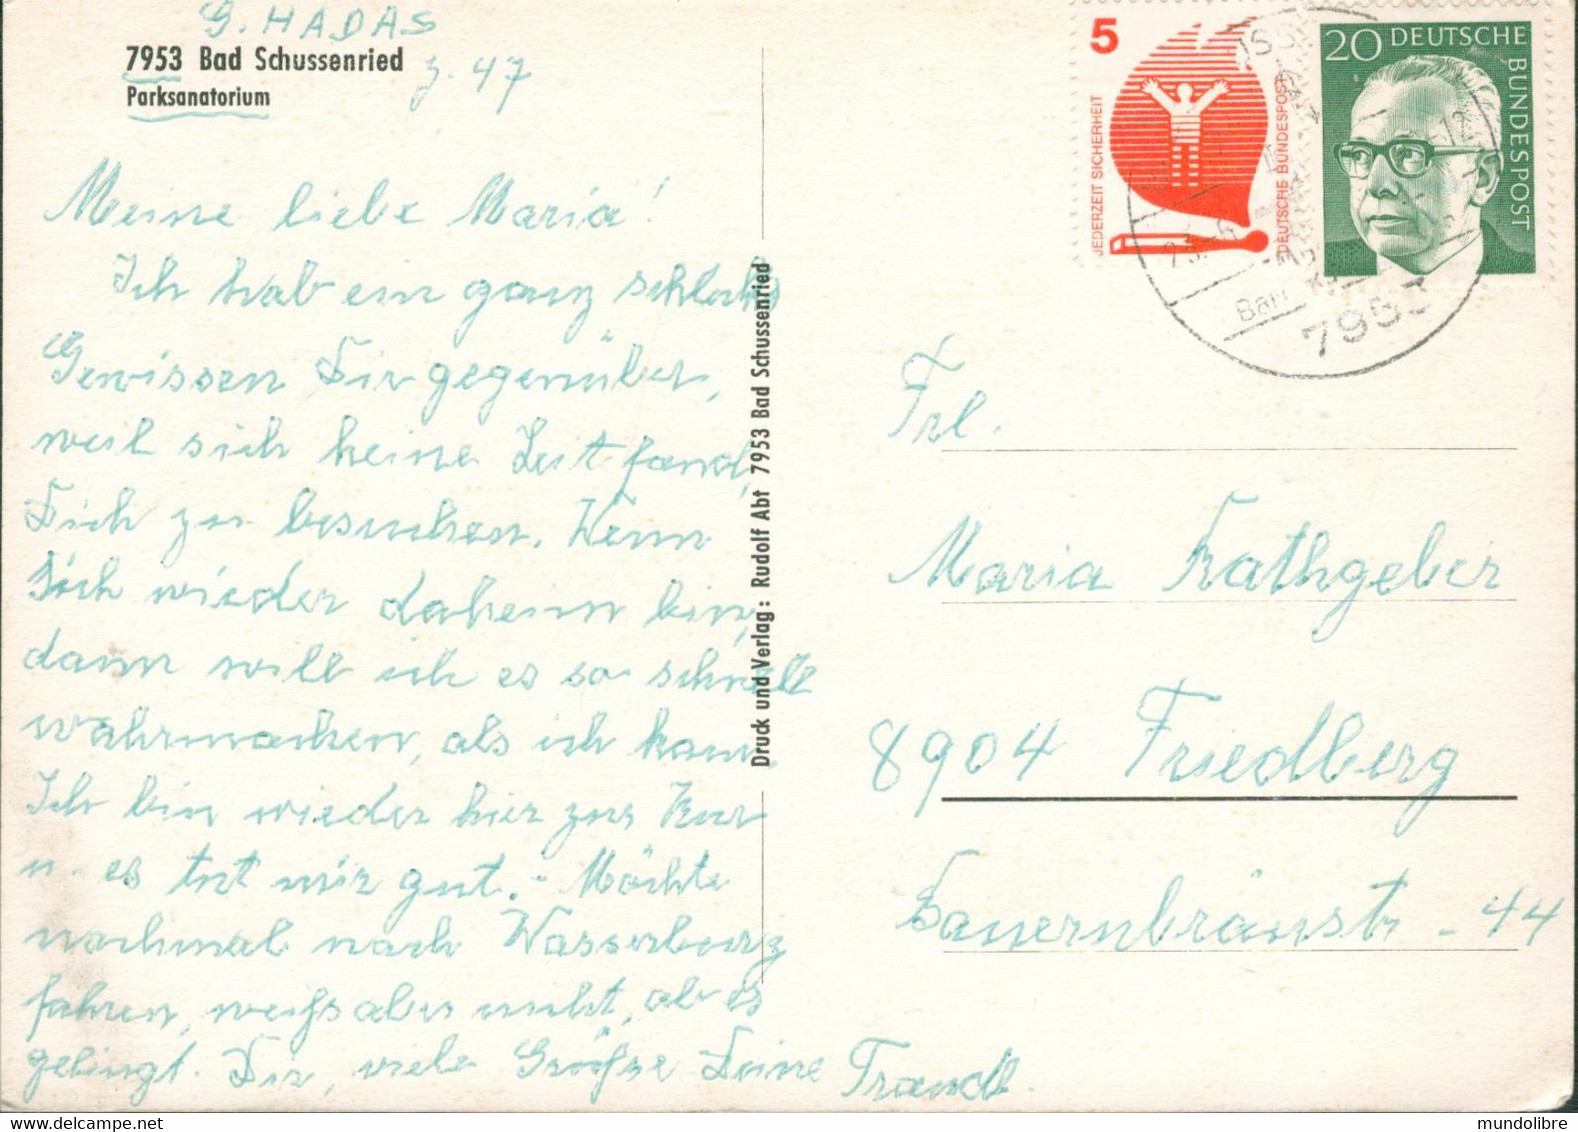 G. HADAS
7953 Bad Schussenried
z. 47
Parksanatorium
Meine liebe Maria!
Ich hab ein ganz schlechtes
Gewissen Dir gegenüber,
weil sich keine Zeit fand,
Dich zu besuchen. Wenn
ich wieder daheim bin,
dann will ich es so schnell
wahrmachen, als ich kann
Ich bin wieder hier zur Kur
u. es tut mir gut. - Möchte
nochmal nach Wasserburg
fahren, weiß aber nicht, ob es
gelingt. Dir, viele Grüße Deine Traudl.
Druck und Verlag: Rudolf Abt 7953 Bad Schussenried
5
JEDERZEIT SICHERHEIT
DEUTSCHE BUNDESPOST
20 DEUTSCHE
BUNDESPOST
Bad
795
Frl.
Maria Rathgeber
8904 Friedberg
Bauernbräustr - 44
mundolibre